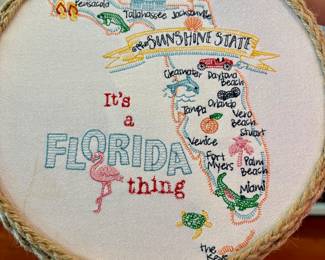 Pensacola
Tallahassee Jacksonville
the SUNSHINE STATE
Clearwater Daytona
Beach
Orlando
Tampa
Vero
Beach
It's
a
FLORIDA
thing
Stuart
Venice
Fort
Myers
Palm
Beach
Miami
the Keys